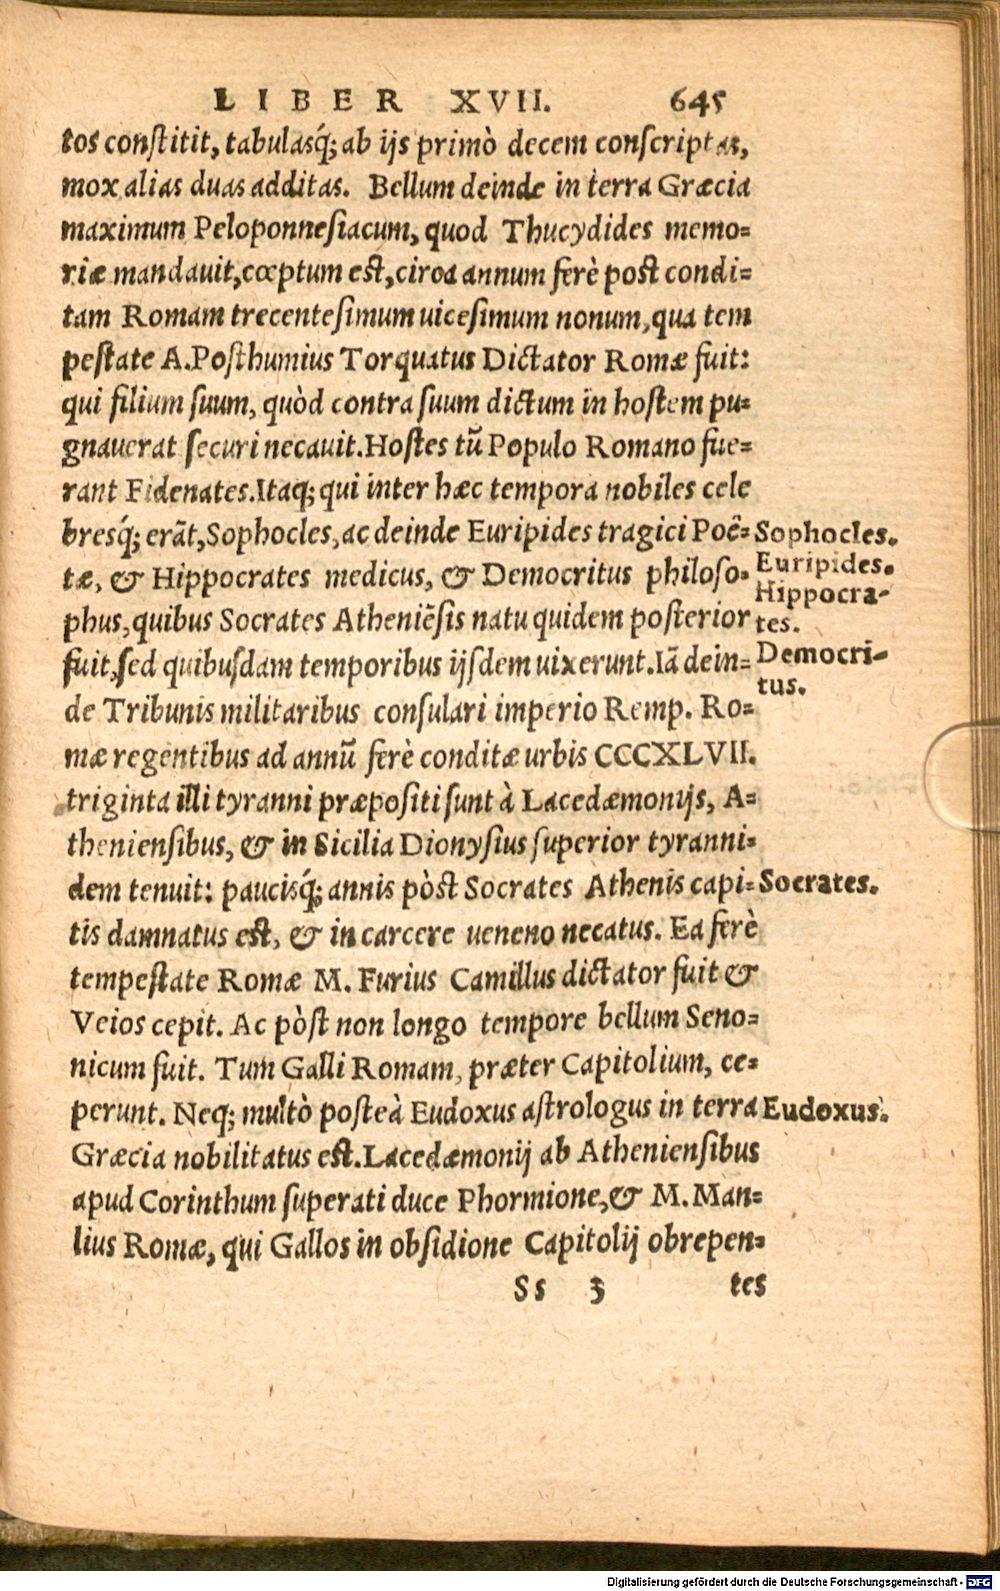 LIBER XVII. 645
tos constitit, tabulasq́; ab ijs primò decem conscriptas,
mox alias duas additas. Bellum deinde in terra Græcia
maximum Peloponnesiacum, quod Thucydides memo=
riæ mandauit, cœptum est, circa annum ferè post condi=
tam Romam trecentesimum uicesimum nonum, qua tem
pestate A. Posthumius Torquatus Dictator Romæ fuit:
qui filium suum, quòd contra suum dictum in hostem pu=
gnauerat securi necauit. Hostes tũ Populo Romano fue=
rant Fidenates. Itaq; qui inter hæc tempora nobiles cele
bresq́; erãt, Sophocles, ac deinde Euripides tragici Poë=
Sophocles.
tæ, & Hippocrates medicus, & Democritus philoso=
Euripides.
Hippocra-
phus, quibus Socrates Atheniẽsis natu quidem posterior
tes.
fuit, sed quibusdam temporibus ijsdem uixerunt. Iã dein=
Democri-
tus.
de Tribunis militaribus consulari imperio Remp. Ro=
mæ regentibus ad annũ ferè conditæ urbis CCCXLVII.
triginta illi tyranni præpositi sunt à Lacedæmonijs, A=
theniensibus, & in Sicilia Dionysius superior tyranni=
dem tenuit: paucisq́; annis pòst Socrates Athenis capi=
Socrates.
tis damnatus est, & in carcere ueneno necatus. Ea ferè
tempestate Romæ M. Furius Camillus dictator fuit &
Veios cepit. Ac pòst non longo tempore bellum Seno=
nicum fuit. Tum Galli Romam, præter Capitolium, ce=
perunt. Neq; multò posteà Eudoxus astrologus in terra
Eudoxus.
Græcia nobilitatus est. Lacedæmonij ab Atheniensibus
apud Corinthum superati duce Phormione, & M. Man=
lius Romæ, qui Gallos in obsidione Capitolij obrepen=
Ss 3 tes
Digitalisierung gefördert durch die Deutsche Forschungsgemeinschaft - DFG